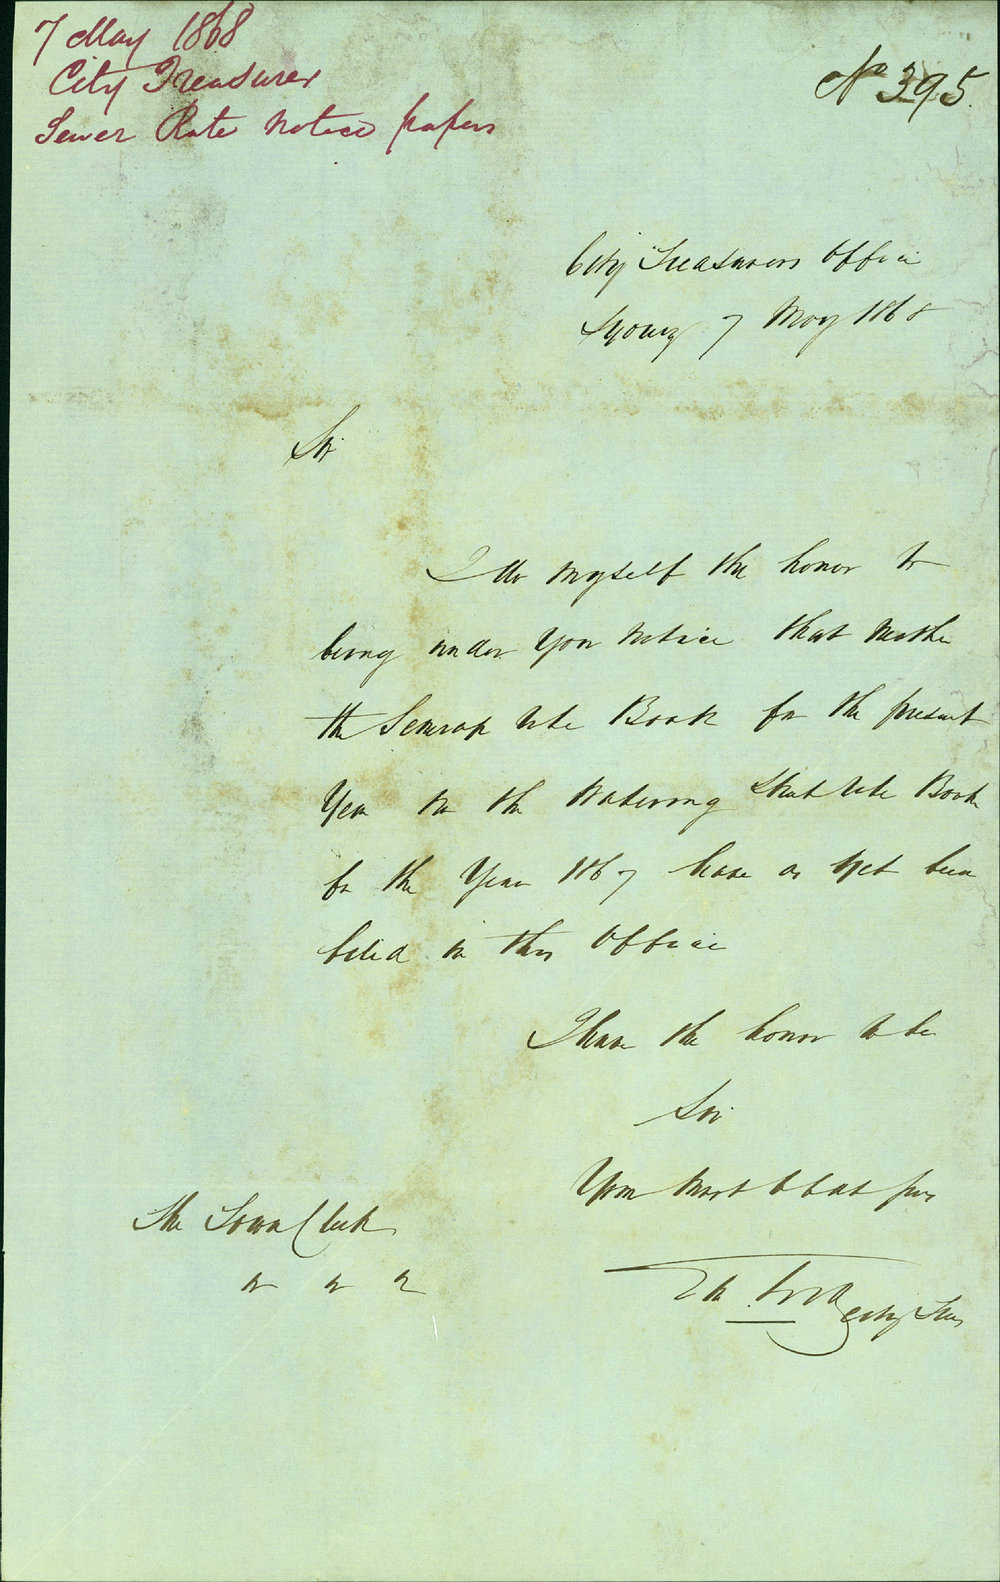 7 May 1868
City Treasurer
Sewer Rate Notice papers
No 395.
City Treasurers Office
Sydney 7 May 1868
Sir
I do myself the honor to
bring under your notice that neither
the Sewerage Rate Book for the present
Year nor the Watering Street Rate Book
for the Year 1867 have as yet been
filed in this Office
I have the honor to be
Sir
Your most obdt
The Town Clerk
City Treas